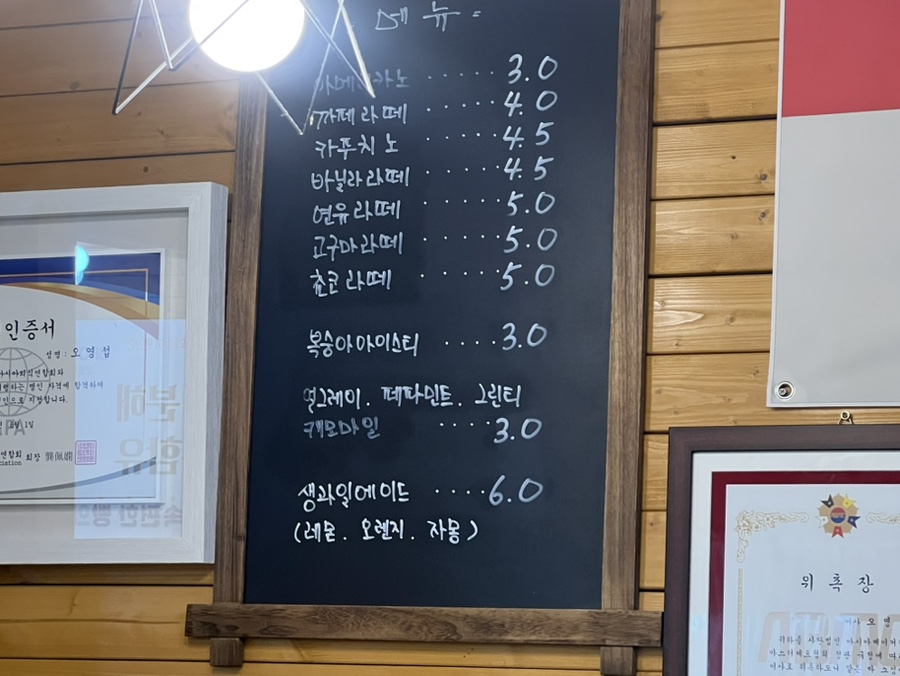 메뉴
아메리카노 ····· 3.0
카페라떼 ····· 4.0
카푸치노 ····· 4.5
바닐라라떼 ····· 4.5
연유라떼 ····· 5.0
고구마라떼 ····· 5.0
쵸코라떼 ····· 5.0
복숭아아이스티 ···· 3.0
얼그레이. 페파민트. 그린티
캐모마일 ···· 3.0
생과일에이드 ···· 6.0
(레몬. 오렌지. 자몽)
인증서
성명: 오영섭
분해
함유
속편한 빵
위촉장